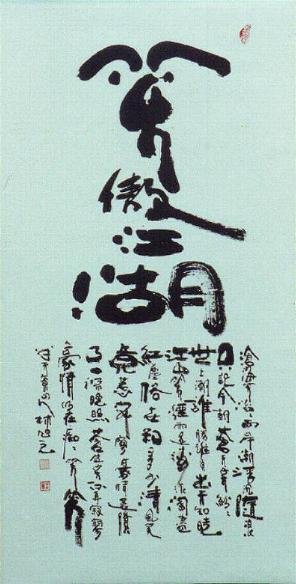 笑傲江湖
滄海笑滔滔兩岸潮浮沉隨浪
只記今朝蒼天笑紛紛
世上潮誰負誰勝出天知曉
江山笑煙雨遙濤浪淘盡
紅塵俗世知多少清風笑
竟惹寂寥豪情還剩
了一襟晚照蒼生笑不再寂寥
豪情仍在癡癡笑笑